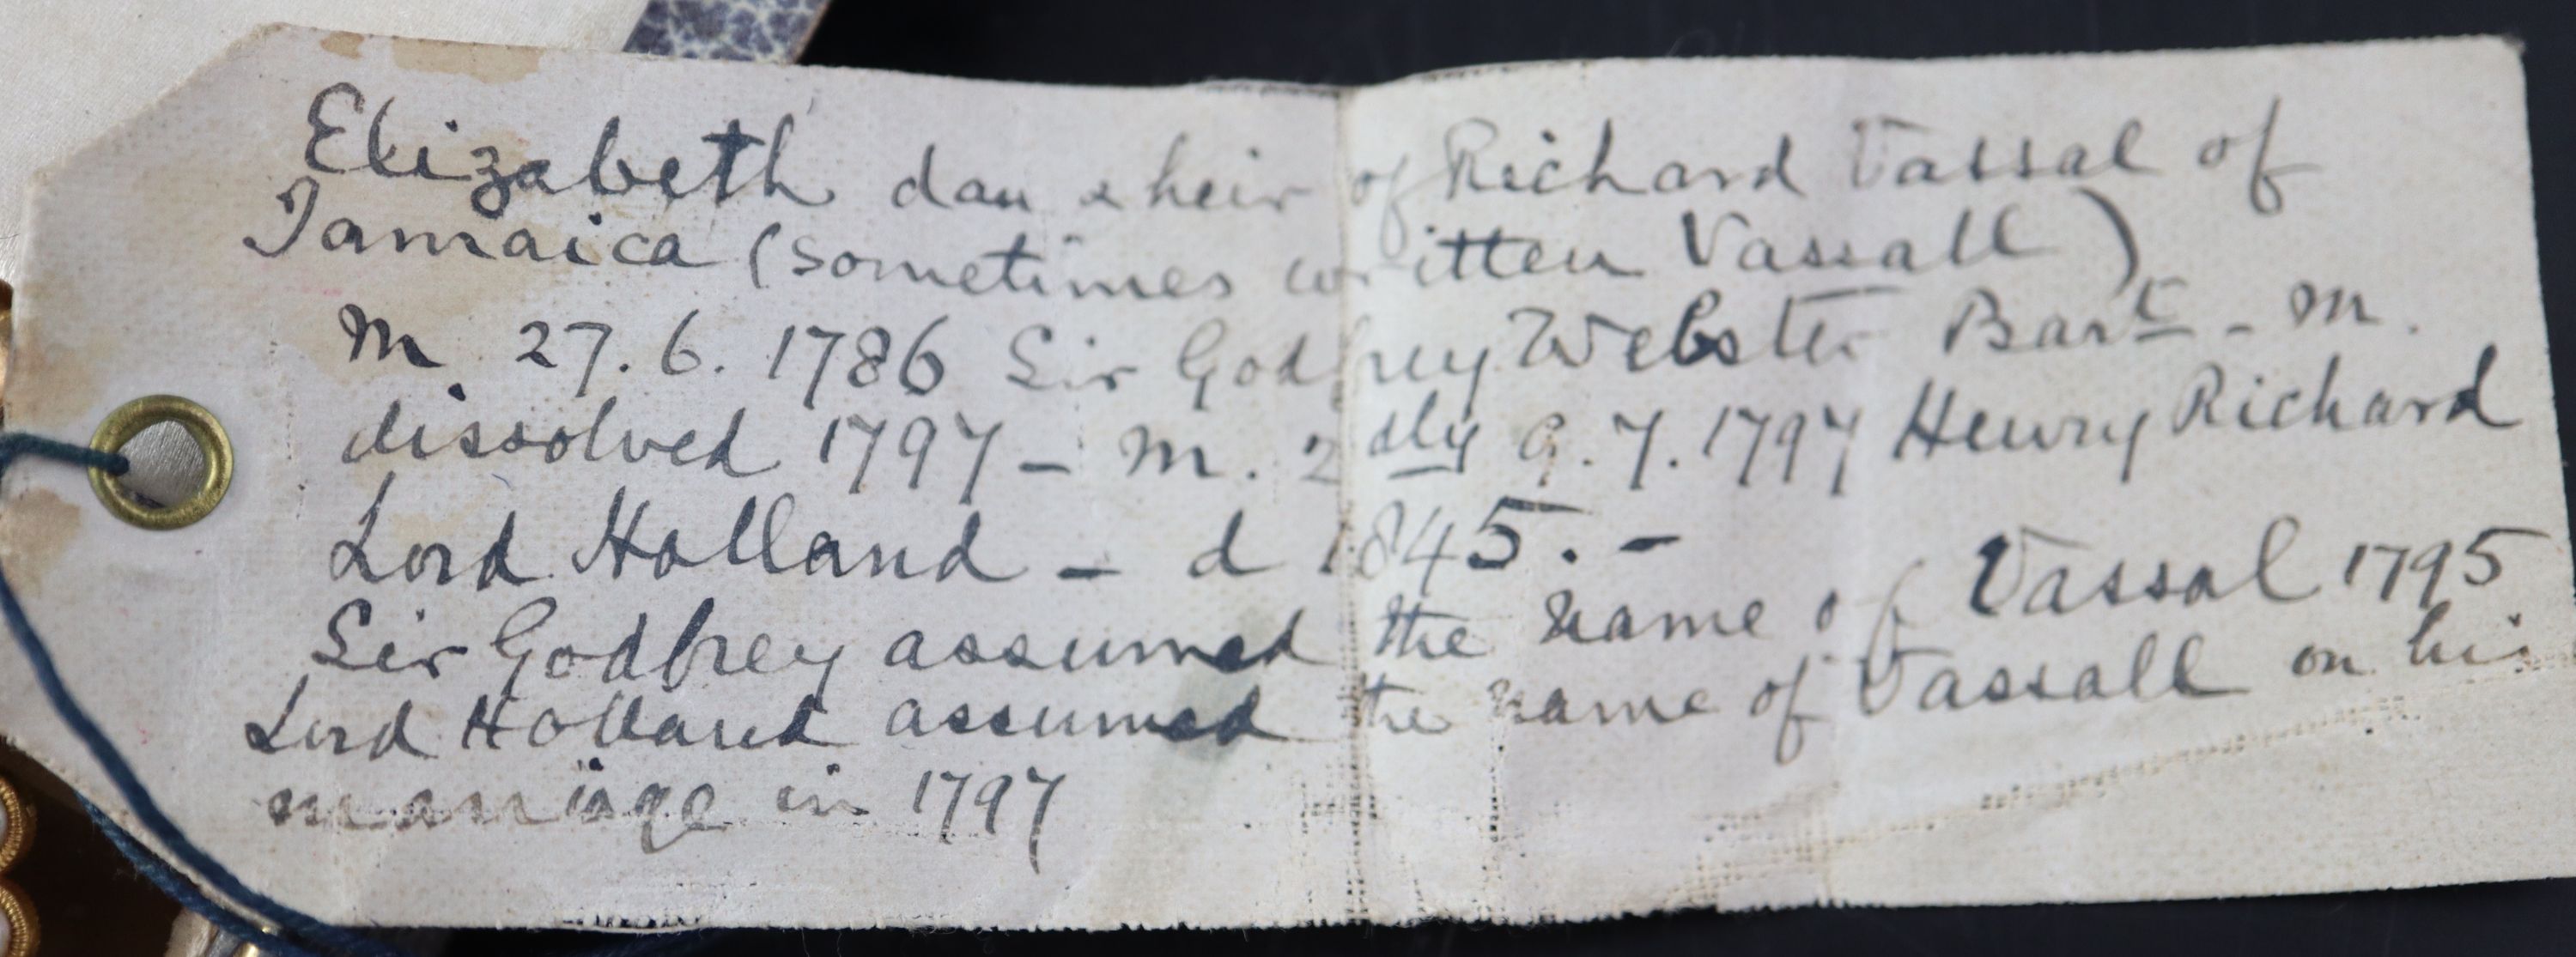 Elizabeth dau & heir of Richard Vassal of
Jamaica (sometimes written Vassall)
m 27.6.1786 Sir Godfrey Webster Bart - m.
dissolved 1797 - m. 2dly 9.7.1797 Henry Richard
Lord Holland - d 1845. -
Sir Godfrey assumed the name of Vassal 1795
Lord Holland assumed the name of Vassall on his
marriage in 1797